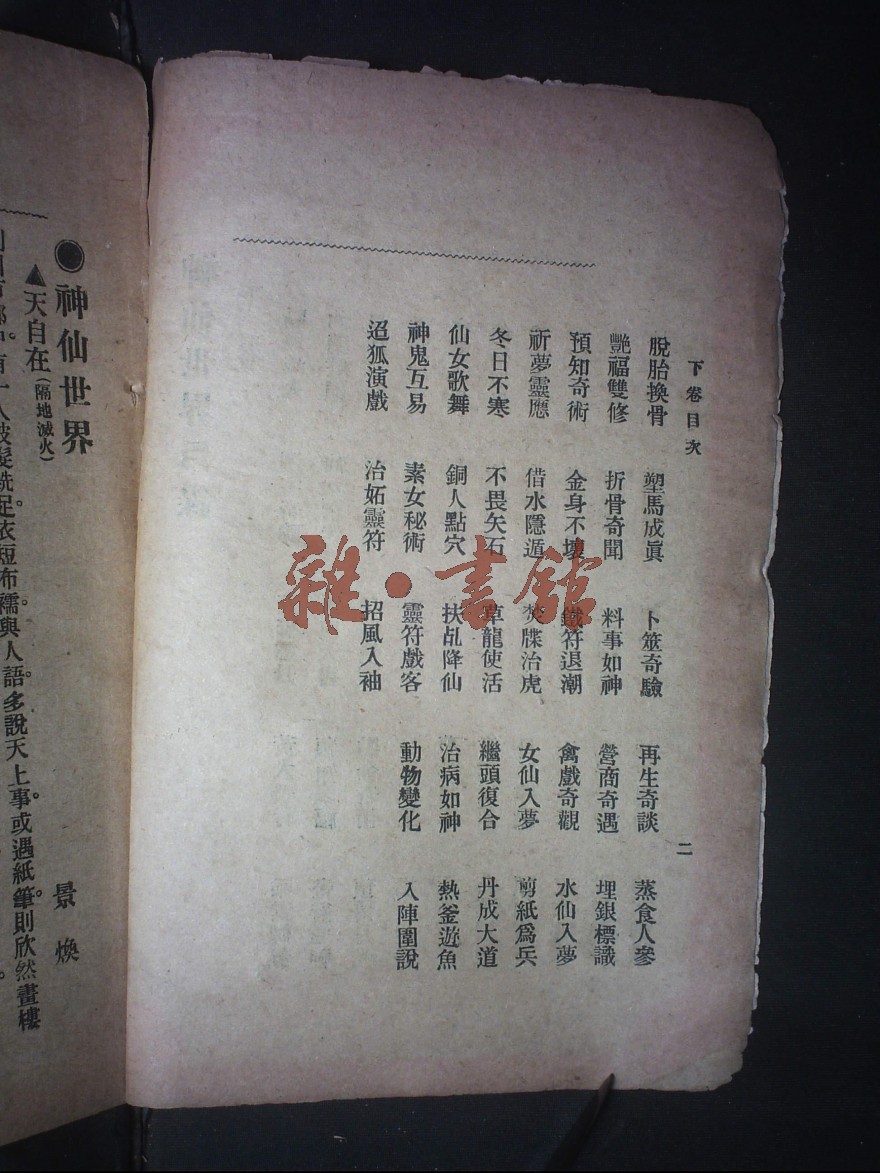 下卷目次
二
脫胎換骨 塑馬成眞 卜筮奇驗 再生奇談 蒸食人參
艷福雙修 折骨奇聞 料事如神 營商奇遇 埋銀標識
預知奇術 金身不壞 鐵符退潮 禽戲奇觀 水仙入夢
祈夢靈應 借水隱遁 焚牒治虎 女仙入夢 剪紙爲兵
冬日不寒 不畏矢石 草龍使活 繼頭復合 丹成大道
仙女歌舞 銅人點穴 扶乩降仙 治病如神 熱釜遊魚
神鬼互易 素女秘術 靈符戲客 動物變化 入陣圍說
迢狐演戲 治妬靈符 招風入袖
雜·書館
●神仙世界
景煥
▲天自在(隔地滅火)
有一人被髮跣足。衣短布襦。與人語。多說天上事。或遇紙筆則欣然畫樓